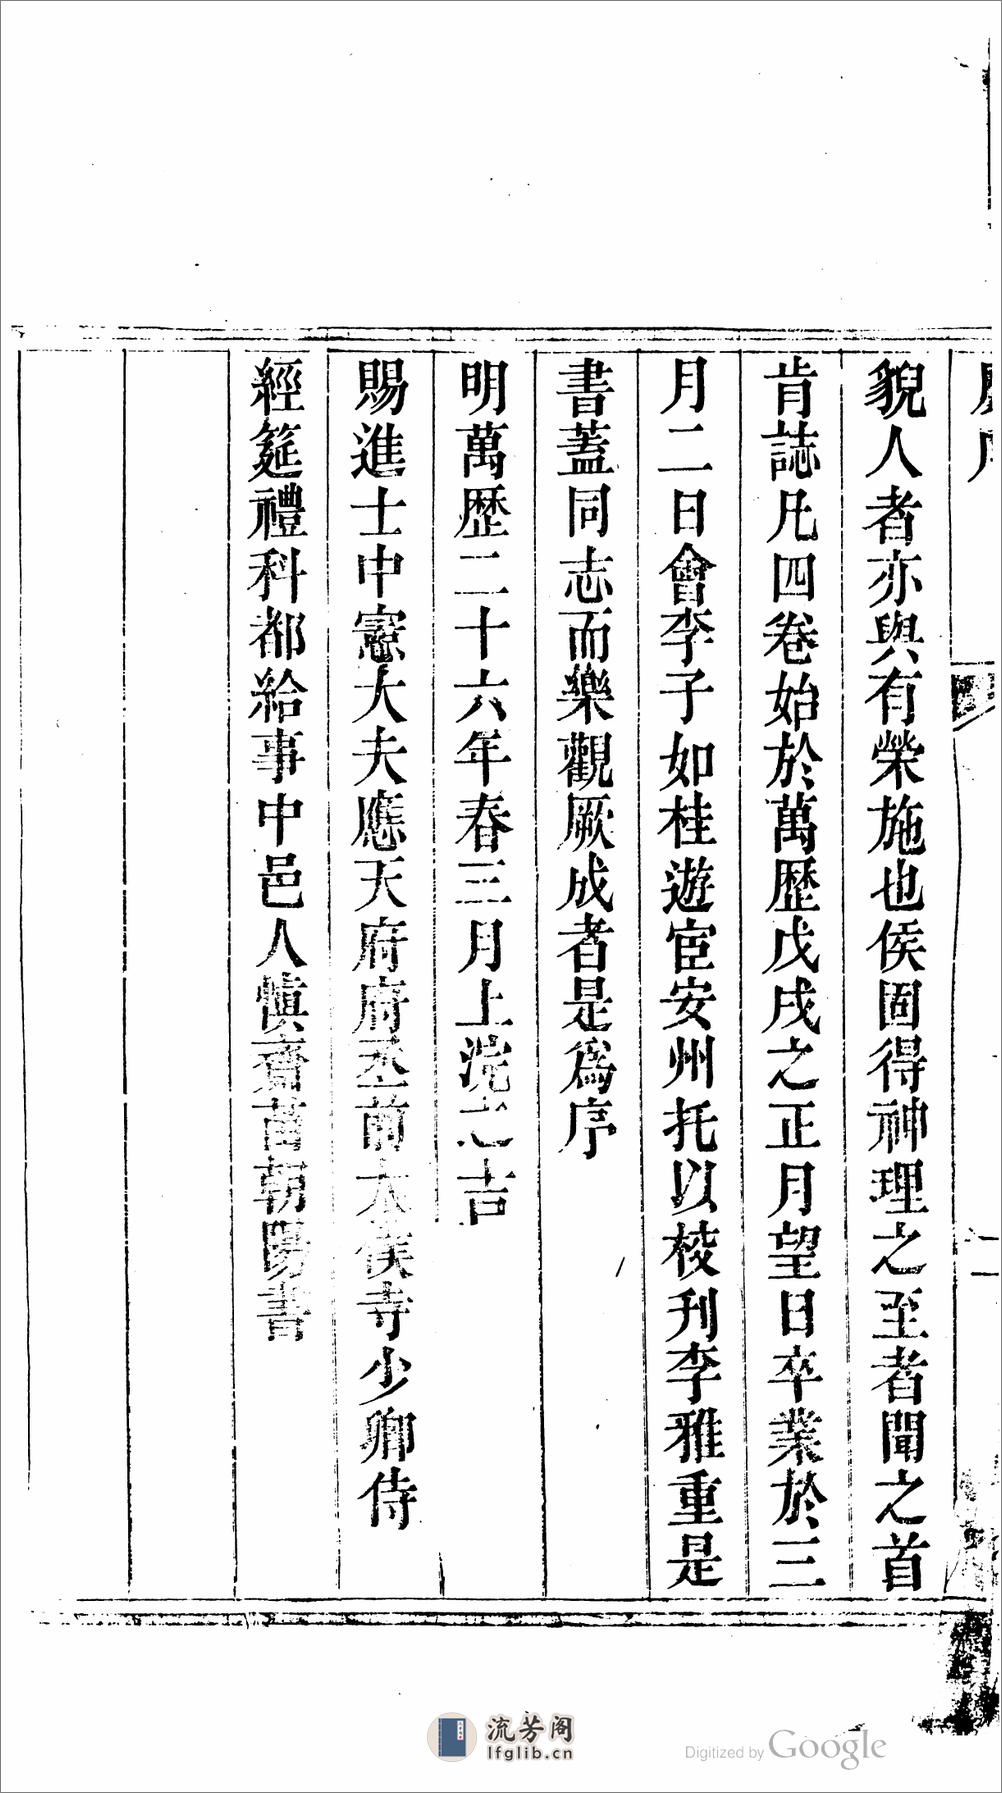 貌人者亦與有榮施也侯固得神理之至者聞之首
肯誌凡四卷始於萬歷戊戌之正月望日卒業於三
月二日會李子如桂遊宦安州托以校刊李雅重是
書蓋同志而樂觀厥成者是為序
明萬歷二十六年春三月上浣之吉
賜進士中憲大夫應天府府丞前太僕寺少卿侍
經筵禮科都給事中邑人慎齋苗朝陽書
流芳阁
lfglib.cn
Digitized by Google